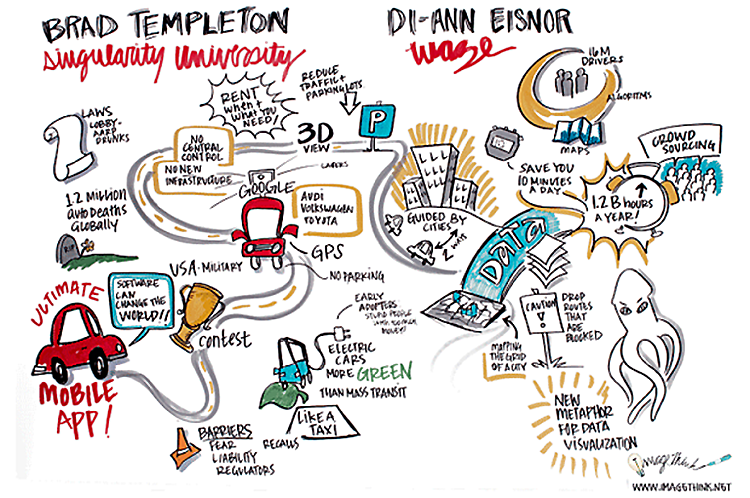 BRAD TEMPLETON
Singularity University
LAWS
LOBBY-
AARP
DRUNKS
RENT
when +
what YOU
NEED!
REDUCE
TRAFFIC +
PARKING LOTS
P
NO
CENTRAL
CONTROL
NO NEW
INFRASTRUCTURE
3D
VIEW
LASERS
GOOGLE
AUDI
VOLKSWAGEN
TOYOTA
1.2 MILLION
auto DEATHS
GLOBALLY
RIP
GPS
NO PARKING
USA-MILITARY
SOFTWARE
CAN
CHANGE THE
WORLD!!
contest
ULTIMATE
MOBILE
APP!
EARLY
ADOPTERS
STUPID PEOPLE
ELECTRIC
CARS
MORE GREEN
THAN MASS TRANSIT
LIKE A
TAXI
RECALLS
BARRIERS
FEAR
LIABILITY
REGULATORS
DI-ANN EISNOR
waze
16M
DRIVERS
ALGORITHMS
MAPS
CROWD
SOURCING
SAVE YOU
10 MINUTES
A DAY
1.2 B hours
A YEAR!
GUIDED BY
CITIES
2 WAY
DATA
CAUTION
!
DROP
ROUTES
THAT
ARE
BLOCKED
MAPPING
THE GRID
OF A CITY
NEW
METAPHOR
FOR DATA
VISUALIZATION
imagethink
WWW.IMAGETHINK.NET